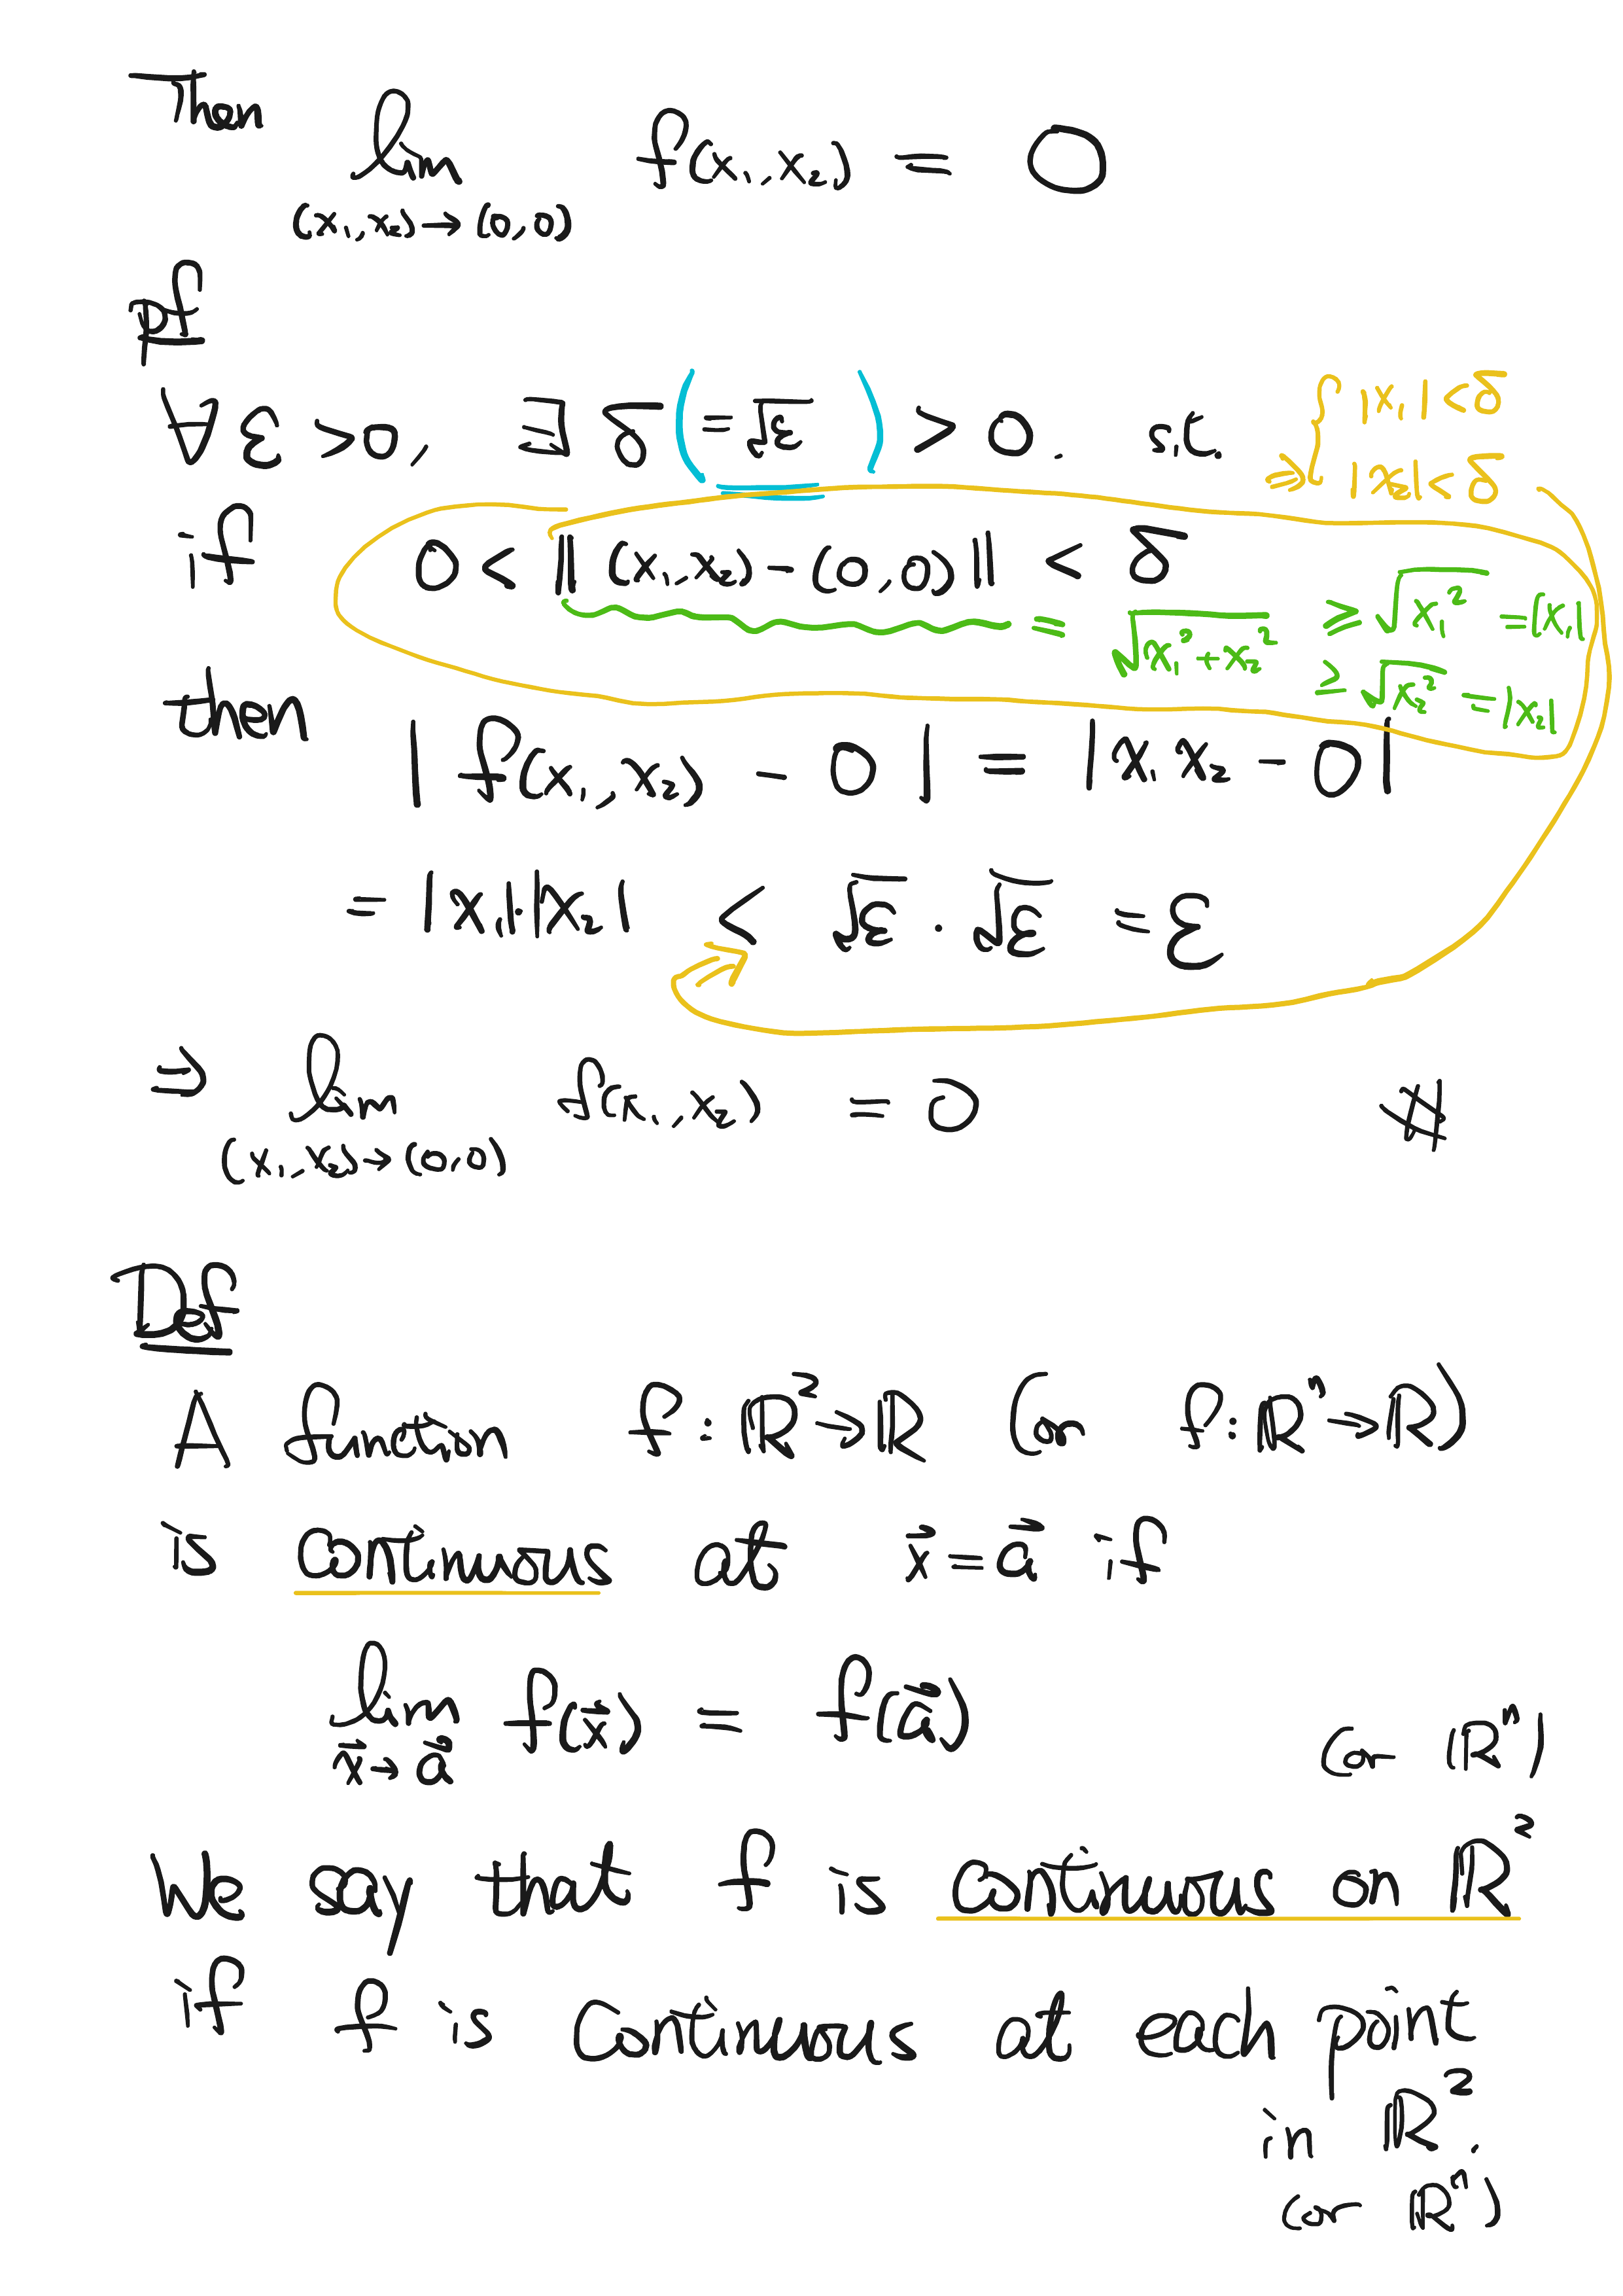 Then lim f(x₁,x₂) = 0
(x₁,x₂)→(0,0)
pf
∀ε>0, ∃ δ(=√ε) >0. s.t.
⇒{ |x₁|<δ
|x₂|<δ
if 0 < ‖(x₁,x₂)-(0,0)‖ < δ
= √(x₁²+x₂²) ≥ √(x₁²) = |x₁|
≥ √(x₂²) = |x₂|
then |f(x₁,x₂) - 0| = |x₁x₂ - 0|
= |x₁|·|x₂| < √ε · √ε = ε
⇒ lim f(x₁,x₂) = 0 #
(x₁,x₂)→(0,0)
Def
A function f: ℝ²→ℝ (or f: ℝⁿ→ℝ)
is continuous at x⃗ = a⃗ if
lim f(x⃗) = f(a⃗)
x⃗→a⃗
(or ℝⁿ)
We say that f is continuous on ℝ²
if f is continuous at each point
in ℝ².
(or ℝⁿ)